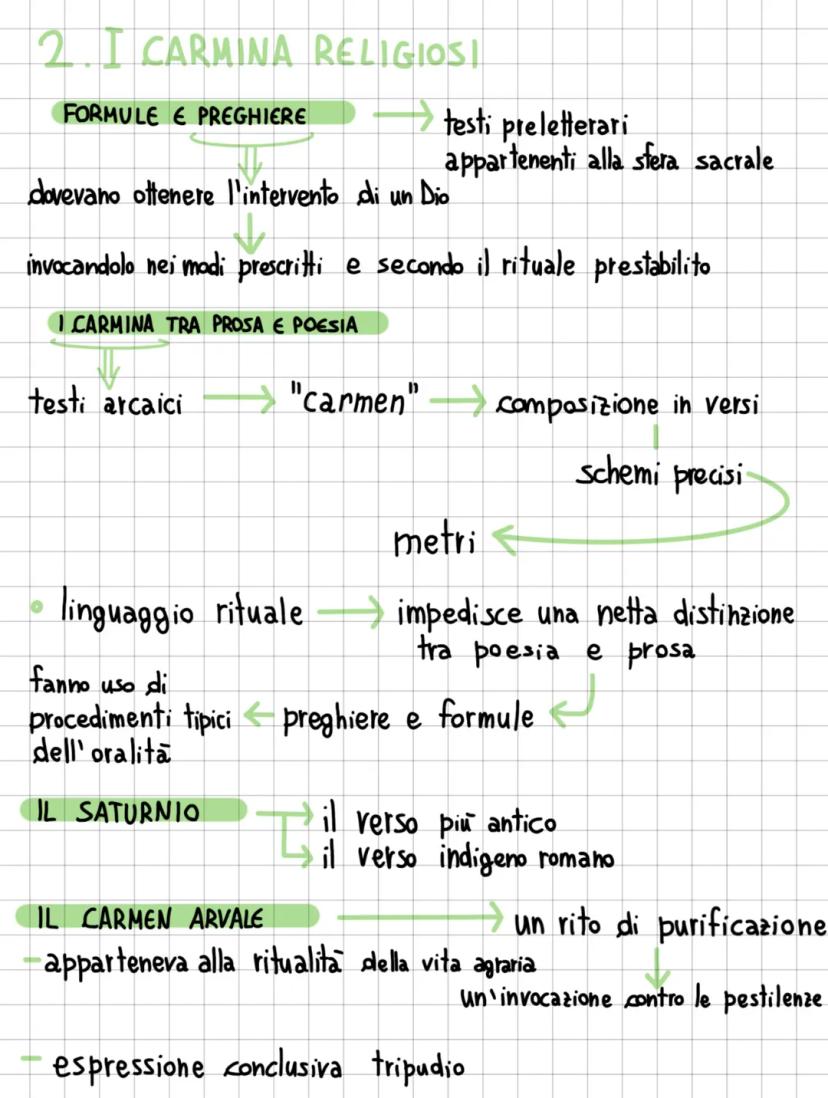 2. I CARMINA RELIGIOSI
FORMULE E PREGHIERE
testi preletterari
appartenenti alla sfera sacrale
dovevano ottenere l'intervento di un Dio
invocandolo nei modi prescritti e secondo il rituale prestabilito
I CARMINA TRA PROSA E POESIA
testi arcaici
"carmen"
composizione in versi
schemi precisi
metri
linguaggio rituale
impedisce una netta distinzione
tra poesia e prosa
preghiere e formule
fanno uso di
procedimenti tipici
dell'oralità
IL SATURNIO
il verso più antico
il verso indigeno romano
IL CARMEN ARVALE
un rito di purificazione
- apparteneva alla ritualità della vita agraria
un'invocazione contro le pestilenze
- espressione conclusiva tripudio